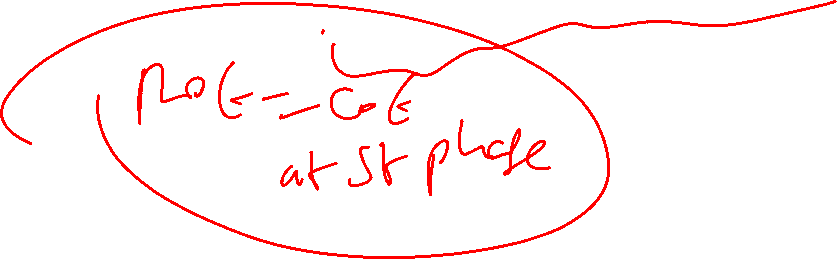 ROE = COE
at St phase